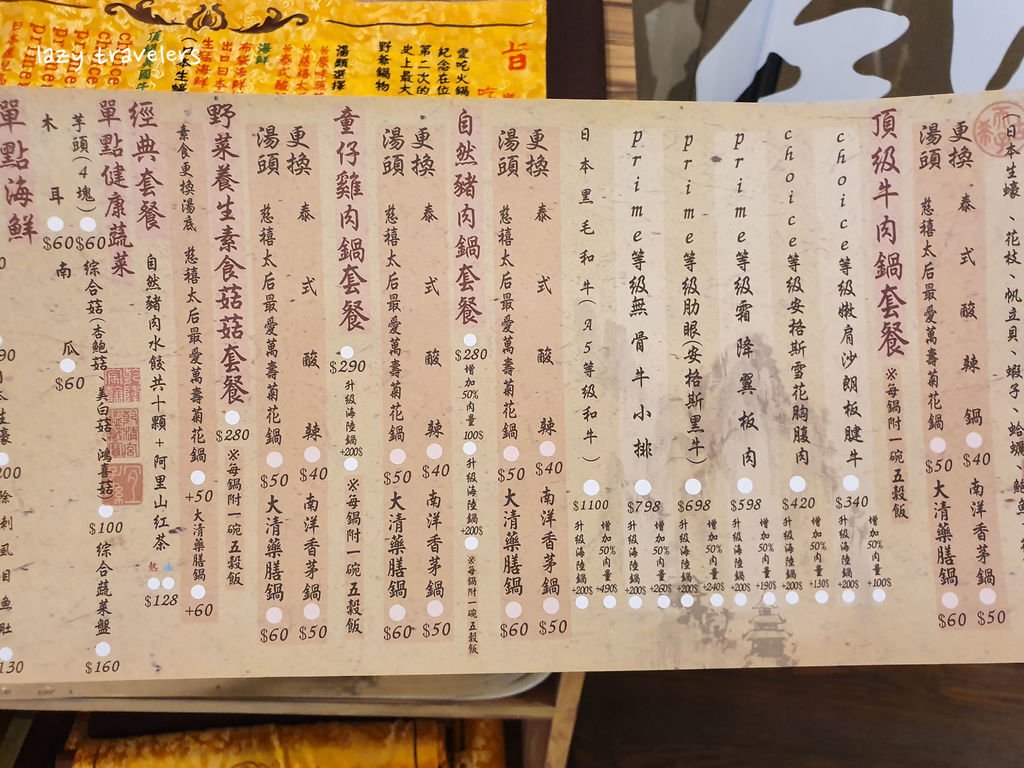 日本生蠔、花枝、帆立貝、蝦子、蛤蠣、鮑
更換
湯頭
泰式酸辣鍋 $40
南洋香茅鍋 $50
慈禧太后最愛萬壽菊花鍋 $50
大清藥膳鍋 $60
頂級牛肉鍋套餐 ※每鍋附一碗五穀飯
choice等級嫩肩沙朗板腱牛 $340
增加50%肉量 +100$
升級海陸鍋 +200$
choice等級安格斯雪花胸腹肉 $420
增加50%肉量 +130$
升級海陸鍋 +200$
prime等級霜降翼板肉 $598
增加50%肉量 +190$
升級海陸鍋 +200$
prime等級肋眼(安格斯黑牛) $698
增加50%肉量 +240$
升級海陸鍋 +200$
prime等級無骨牛小排 $798
增加50%肉量 +260$
升級海陸鍋 +200$
日本黑毛和牛(A5等級和牛) $1100
增加50%肉量 +490$
升級海陸鍋 +200$
更換
湯頭
泰式酸辣 $40
南洋香茅鍋 $50
慈禧太后最愛萬壽菊花鍋 $50
大清藥膳鍋 $60
自然豬肉鍋套餐 $280
增加50%肉量 100$
升級海陸鍋 +200$
※每鍋附一碗五穀飯
更換
湯頭
泰式酸辣 $40
南洋香茅鍋 $50
慈禧太后最愛萬壽菊花鍋 $50
大清藥膳鍋 $60
童仔雞肉鍋套餐 $290
升級海陸鍋 +200$
※每鍋附一碗五穀飯
更換
湯頭
泰式酸辣 $40
南洋香茅鍋 $50
慈禧太后最愛萬壽菊花鍋 $50
大清藥膳鍋 $60
野菜養生素食菇菇套餐 $280
※每鍋附一碗五穀飯
素食更換湯底
慈禧太后最愛萬壽菊花鍋 +50
大清藥膳鍋 +60
經典套餐
自然豬肉水餃共十顆+阿里山紅茶
熱 冰
$128
單點健康蔬菜
芋頭(4塊) $60
綜合菇(杏鮑菇、美白菇、鴻喜菇 $100
綜合蔬菜盤 $160
木耳 $60
南瓜 $60
單點海鮮
愛吃火鍋
紀念在位
第二次的
史上最大
野爺鍋物
湯頭選擇
海鮮
lazy travelers